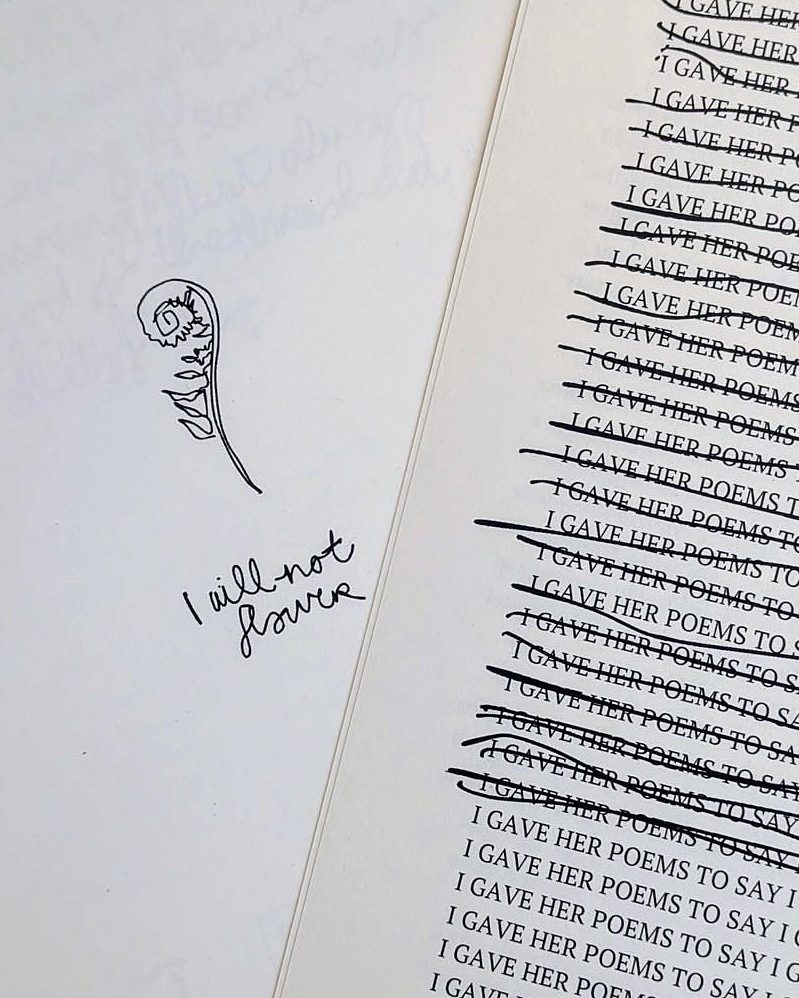 I will not
flower
I GAVE HER
I GAVE HER
I GAVE HER
I GAVE HER
I GAVE HER PO
I GAVE HER PO
I GAVE HER PO
I GAVE HER POE
I GAVE HER POE
I GAVE HER POEM
I GAVE HER POEM
I GAVE HER POEMS
I GAVE HER POEMS
I GAVE HER POEMS
I GAVE HER POEMS T
I GAVE HER POEMS TO
I GAVE HER POEMS TO
I GAVE HER POEMS TO
I GAVE HER POEMS TO S
I GAVE HER POEMS TO S
I GAVE HER POEMS TO SA
I GAVE HER POEMS TO SA
I GAVE HER POEMS TO SAY
I GAVE HER POEMS TO SAY
I GAVE HER POEMS TO SAY I
I GAVE HER POEMS TO SAY I
I GAVE HER POEMS TO SAY I G
I GAVE HER POEMS TO SAY I G
I GAVE HER POEMS TO SAY I G
I GAVE HER POEMS TO
I GAVE